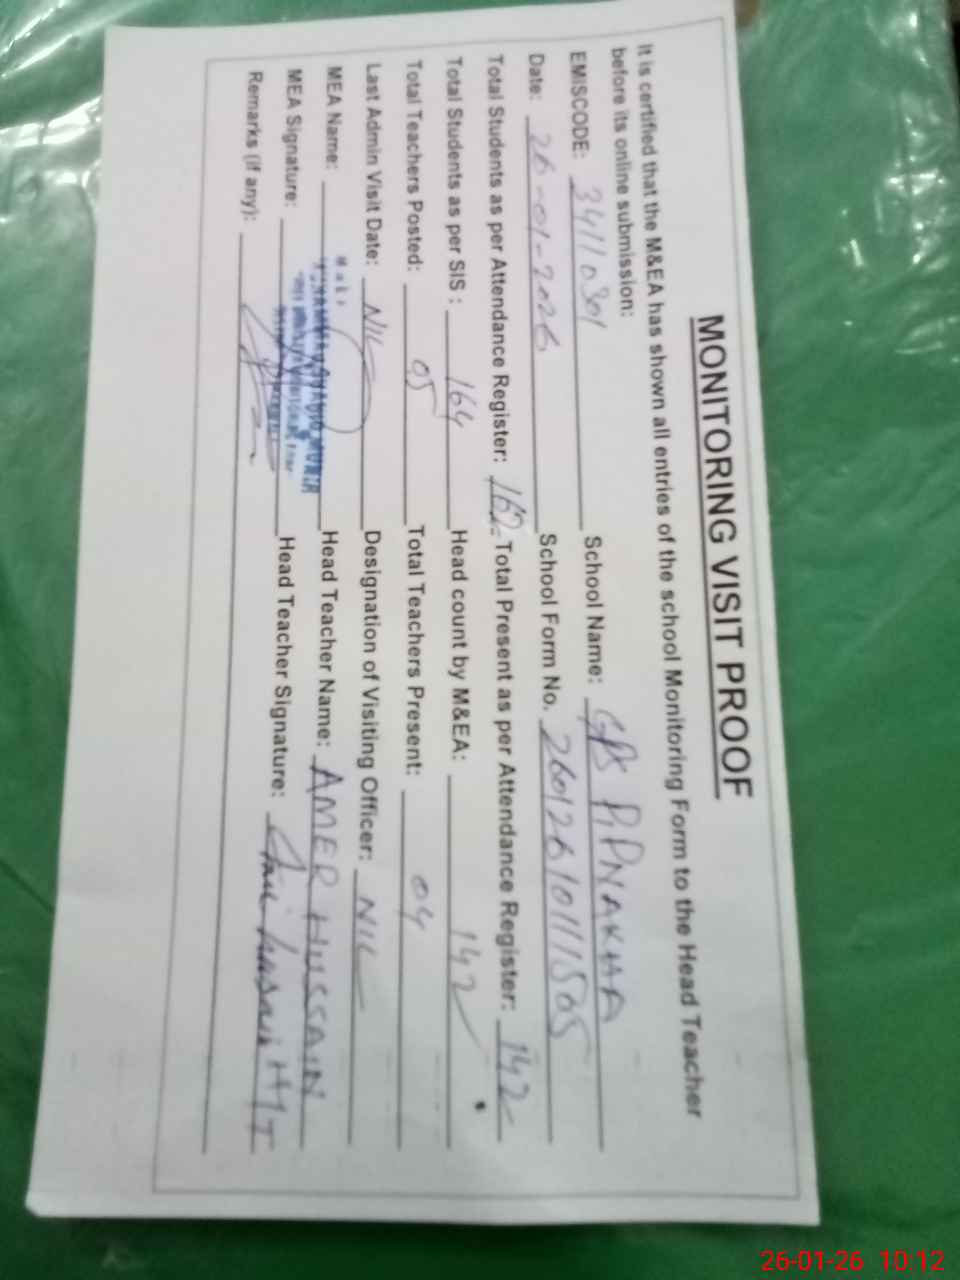 MONITORING VISIT PROOF
It is certified that the M&EA has shown all entries of the school Monitoring Form to the Head Teacher
before its online submission:
EMISCODE: 34110301 School Name: GPS PIPNAKHA
Date: 26-01-2026 School Form No. 26012610111505
Total Students as per Attendance Register: 162 Total Present as per Attendance Register: 142
Total Students as per SIS : 164 Head count by M&EA: 142
Total Teachers Posted: 05 Total Teachers Present: 04
Last Admin Visit Date: NIL Designation of Visiting Officer: NIL
MEA Name: Head Teacher Name: AMER HUSSAIN
MEA Signature: Head Teacher Signature:
Remarks (if any):
26-01-26 10:12